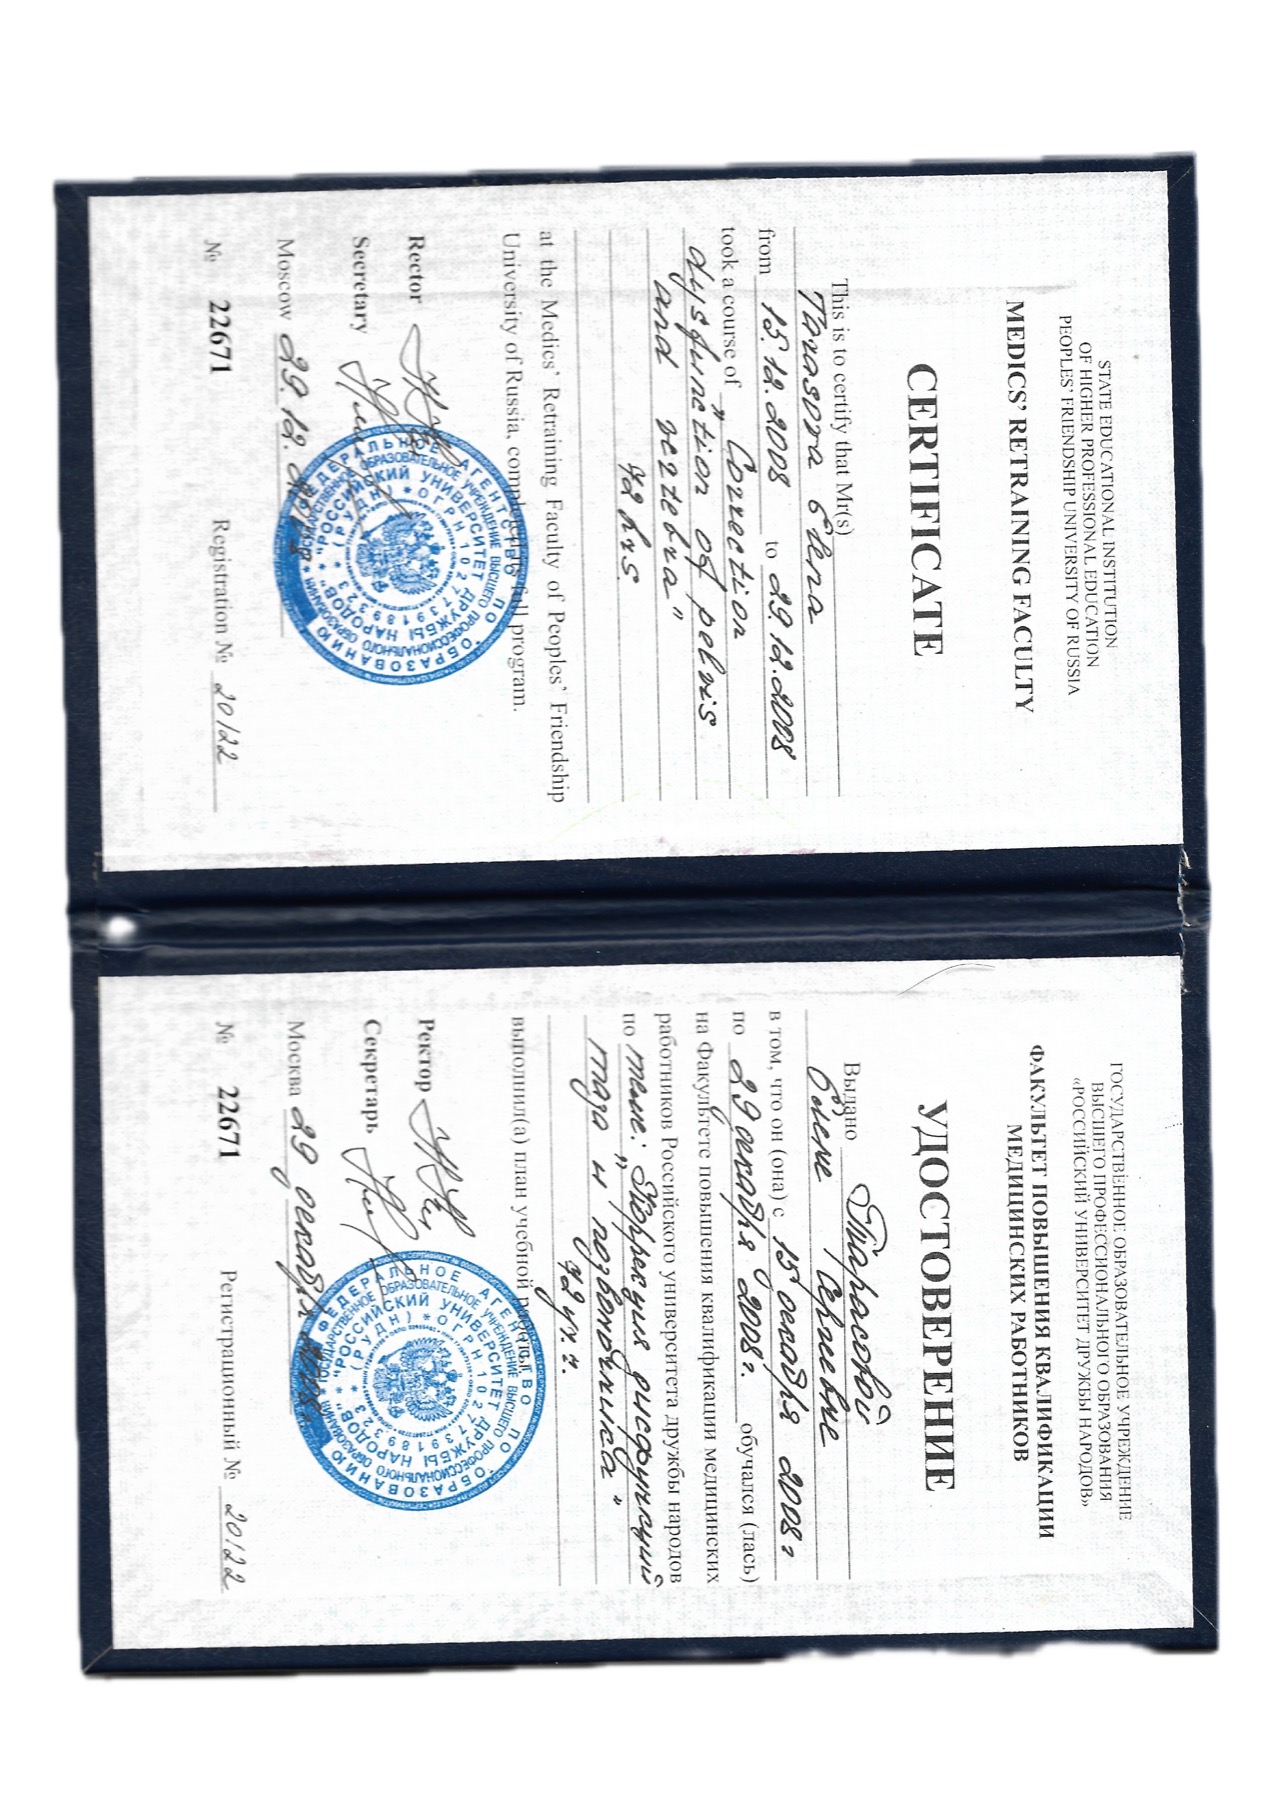 STATE EDUCATIONAL INSTITUTION
OF HIGHER PROFESSIONAL EDUCATION
PEOPLES' FRIENDSHIP UNIVERSITY OF RUSSIA
MEDICS' RETRAINING FACULTY
CERTIFICATE
This is to certify that Mr(s)
Tarasova Elena
from 15.12.2008 to 29.12.2008
took a course of „Correction
dysfunction of pelvis
and vertebra"
72 hrs.
at the Medics' Retraining Faculty of Peoples' Friendship
University of Russia, completed its full program.
Rector
Secretary
Moscow 29.12.2008
№ 22671 Registration № 20/22
ФЕДЕРАЛЬНОЕ АГЕНТСТВО ПО ОБРАЗОВАНИЮ
ГОСУДАРСТВЕННОЕ ОБРАЗОВАТЕЛЬНОЕ УЧРЕЖДЕНИЕ ВЫСШЕГО ПРОФЕССИОНАЛЬНОГО ОБРАЗОВАНИЯ
"РОССИЙСКИЙ УНИВЕРСИТЕТ ДРУЖБЫ НАРОДОВ"
(РУДН) * ОГРН 1027739189323 *
ГОСУДАРСТВЕННОЕ ОБРАЗОВАТЕЛЬНОЕ УЧРЕЖДЕНИЕ
ВЫСШЕГО ПРОФЕССИОНАЛЬНОГО ОБРАЗОВАНИЯ
«РОССИЙСКИЙ УНИВЕРСИТЕТ ДРУЖБЫ НАРОДОВ»
ФАКУЛЬТЕТ ПОВЫШЕНИЯ КВАЛИФИКАЦИИ
МЕДИЦИНСКИХ РАБОТНИКОВ
УДОСТОВЕРЕНИЕ
Выдано Тарасовой
Елене Сергеевне
в том, что он (она) с 15 декабря 2008г
по 29 декабря 2008г. обучался (лась)
на Факультете повышения квалификации медицинских
работников Российского университета дружбы народов
по теме: „Коррекция дисфункций
таза и позвоночника"
72 уч. ч.
выполнил(а) план учебной работы.
Ректор
Секретарь
Москва 29 декабря 2008г.
№ 22671 Регистрационный № 20/22
ФЕДЕРАЛЬНОЕ АГЕНТСТВО ПО ОБРАЗОВАНИЮ
ГОСУДАРСТВЕННОЕ ОБРАЗОВАТЕЛЬНОЕ УЧРЕЖДЕНИЕ ВЫСШЕГО ПРОФЕССИОНАЛЬНОГО ОБРАЗОВАНИЯ
"РОССИЙСКИЙ УНИВЕРСИТЕТ ДРУЖБЫ НАРОДОВ"
(РУДН) * ОГРН 1027739189323 *